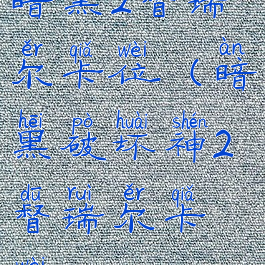 暗黑2督瑞
ěr qiǎ wèi àn
尔卡位（暗
hēi pò huài shén
黑破坏神2
dū ruì ěr qiǎ
督瑞尔卡
wèi